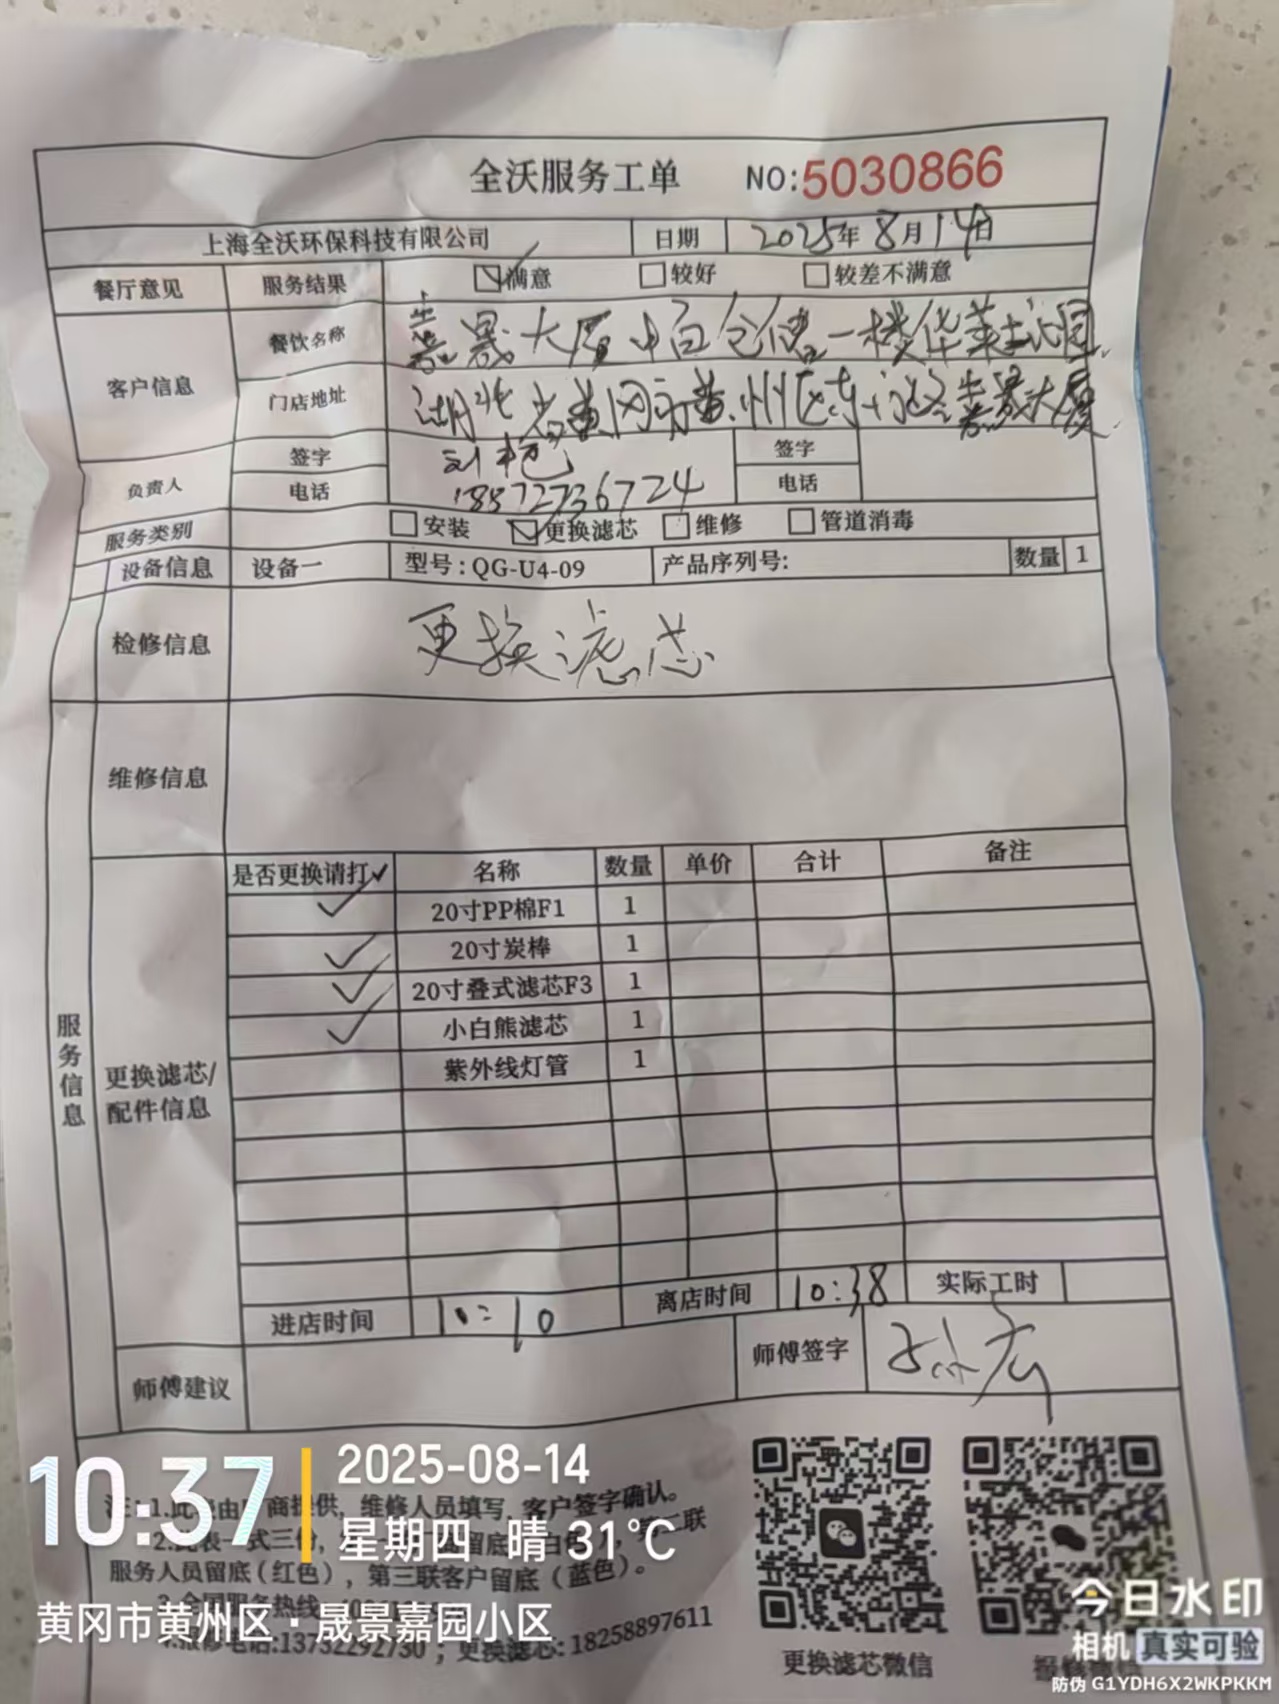 全沃服务工单 NO:5030866
上海全沃环保科技有限公司 日期 2025年8月14日
餐厅意见 服务结果 满意 较好 较差不满意
客户信息 餐饮名称 嘉晟大厦中百仓储一楼华莱士
门店地址 湖北省黄冈市黄州区东门路嘉晟大厦
负责人 签字 签字
电话 18872736724 电话
服务类别 安装 更换滤芯 维修 管道消毒
设备信息 设备一 型号:QG-U4-09 产品序列号: 数量 1
检修信息 更换滤芯
维修信息
服务信息
更换滤芯/配件信息
是否更换请打✓ 名称 数量 单价 合计 备注
✓ 20寸PP棉F1 1
✓ 20寸炭棒 1
✓ 20寸叠式滤芯F3 1
✓ 小白熊滤芯 1
紫外线灯管 1
进店时间 10:10 离店时间 10:38 实际工时
师傅建议 师傅签字
注:1.此 由 商提供,维修人员填写,客户签字确认。
2.此表一式三份, 留底 白 , 二联
服务人员留底(红色),第三联客户留底(蓝色)。
全国服务热线
报修电话:13732292730;更换滤芯:18258897611
更换滤芯微信 报修微信
10:37 2025-08-14
星期四 晴 31℃
黄冈市黄州区·晟景嘉园小区
今日水印
相机 真实可验
防伪 G1YDH6X2WKPKKM